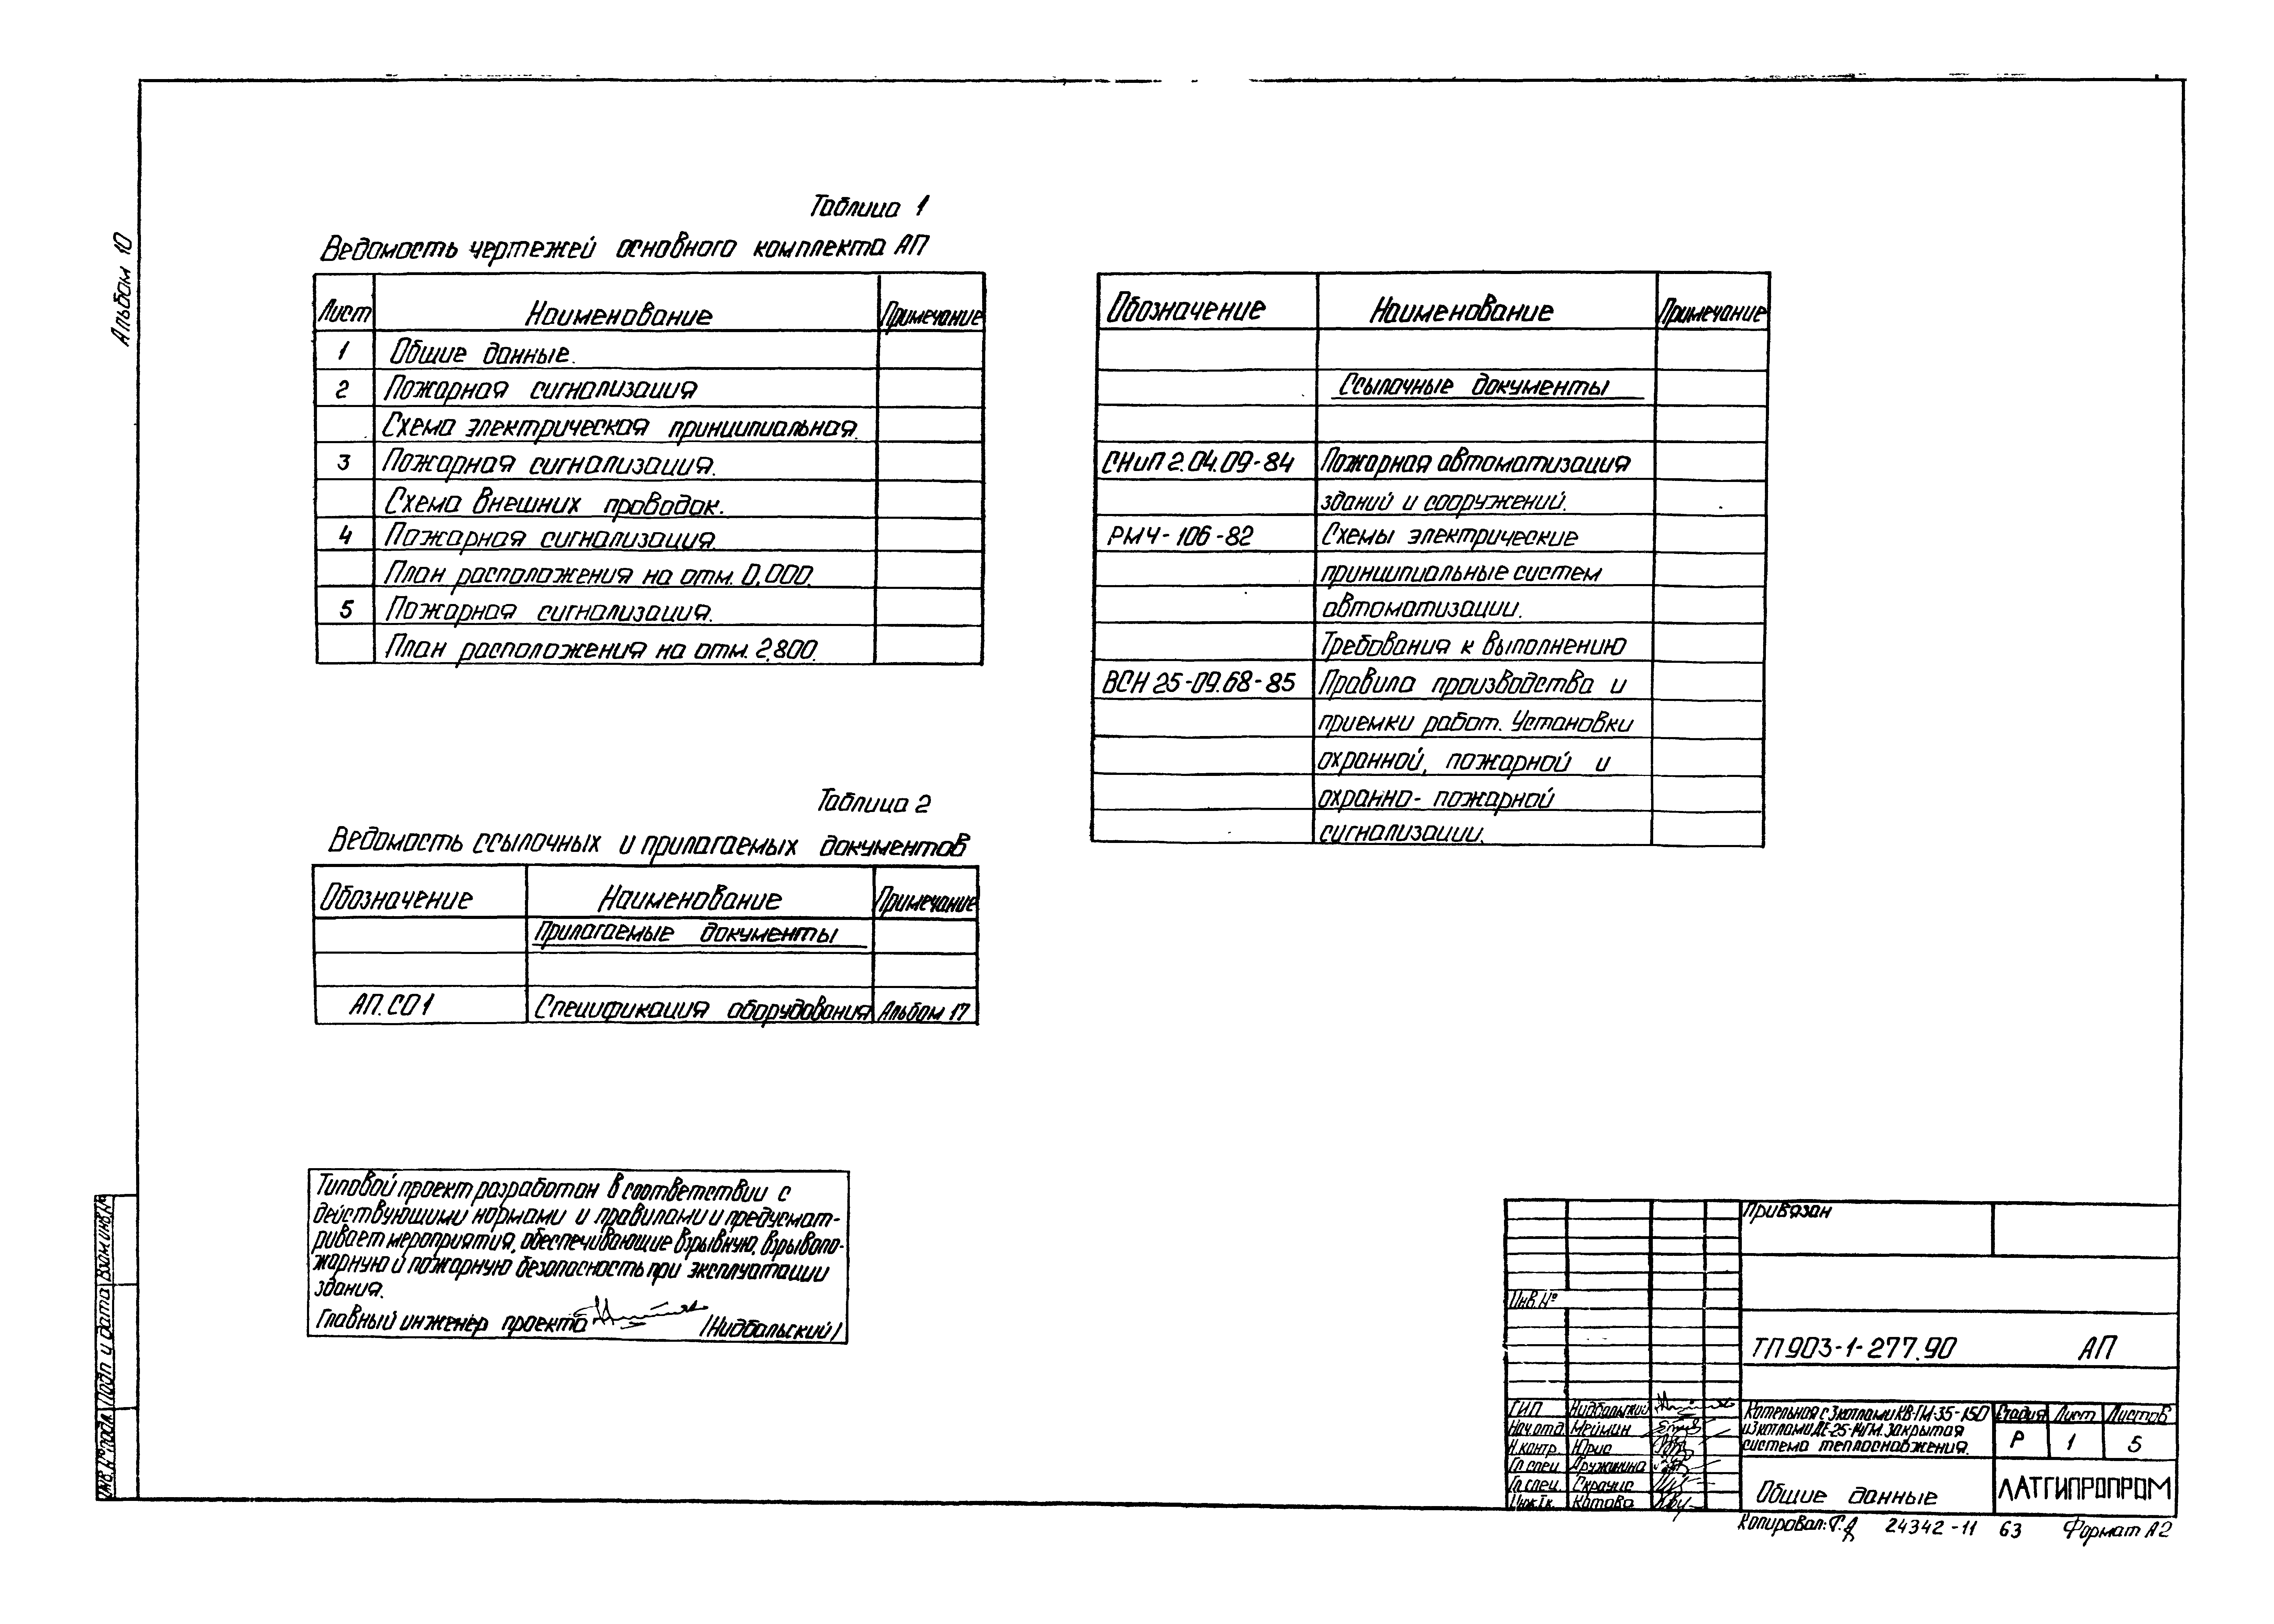 Альбом 10
Таблица 1
Ведомость чертежей основного комплекта АП
Лист Наименование Примечание
1 Общие данные.
2 Пожарная сигнализация
Схема электрическая принципиальная.
3 Пожарная сигнализация.
Схема внешних проводок.
4 Пожарная сигнализация.
План расположения на отм. 0,000.
5 Пожарная сигнализация.
План расположения на отм. 2,800.
Таблица 2
Ведомость ссылочных и прилагаемых документов
Обозначение Наименование Примечание
Прилагаемые документы
АП.СО1 Спецификация оборудования Альбом 17
Обозначение Наименование Примечание
Ссылочные документы
СНиП 2.04.09-84 Пожарная автоматизация
зданий и сооружений.
РМ4-106-82 Схемы электрические
принципиальные систем
автоматизации.
Требования к выполнению
ВСН 25-09.68-85 Правила производства и
приемки работ. Установки
охранной, пожарной и
охранно-пожарной
сигнализации.
Типовой проект разработан в соответствии с
действующими нормами и правилами и предусмат-
ривает мероприятия, обеспечивающие взрывную, взрывопо-
жарную и пожарную безопасность при эксплуатации
здания.
Главный инженер проекта /Нидбальский/
Инв. № подл. Подп и дата Взам инв. №
Привязан
Инв. №
ТП 903-1-277.90 АП
ГИП Нидбальский
Нач.отд Мейман
Н.контр. Юрна
Гл спец Дружинина
Гл.спец. Скрауис
Инж.Iк. Котова
Котельная с 3 котлами КВ-ГМ-35-150
и 3 котлами ДЕ-25-14ГМ. Закрытая
система теплоснабжения.
Стадия Лист Листов
Р 1 5
Общие данные
ЛАТГИПРОПРОМ
Копировал: 24342-11 63 Формат А2